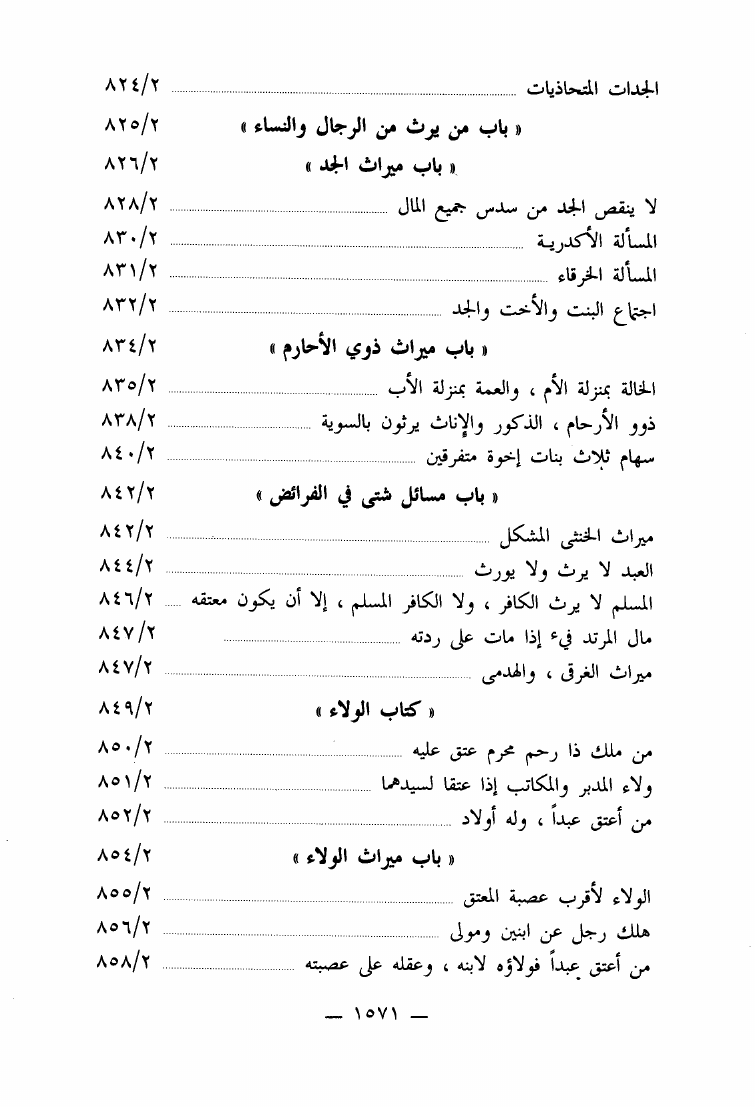 الجدات المتحاذيات ........ ٨٢٤/٢
« باب من يرث من الرجال والنساء » ٨٢٥/٢
« باب ميراث الجد » ٨٢٦/٢
لا ينقص الجد من سدس جميع المال ........ ٨٢٨/٢
المسألة الأكدرية ........ ٨٣٠/٢
المسألة الخرقاء ........ ٨٣١/٢
اجتماع البنت والأخت والجد ........ ٨٣٢/٢
« باب ميراث ذوي الأحارم » ٨٣٤/٢
الخالة بمنزلة الأم ، والعمة بمنزلة الأب ........ ٨٣٥/٢
ذوو الأرحام ، الذكور والإناث يرثون بالسوية ........ ٨٣٨/٢
سهام ثلاث بنات إخوة متفرقين ........ ٨٤٠/٢
« باب مسائل شتى في الفرائض » ٨٤٢/٢
ميراث الخنثى المشكل ........ ٨٤٢/٢
العبد لا يرث ولا يورث ........ ٨٤٤/٢
المسلم لا يرث الكافر ، ولا الكافر المسلم ، إلا أن يكون معتقه ........ ٨٤٦/٢
مال المرتد فيء إذا مات على ردته ........ ٨٤٧/٢
ميراث الغرقى ، والهدمى ........ ٨٤٧/٢
« كتاب الولاء » ٨٤٩/٢
من ملك ذا رحم محرم عتق عليه ........ ٨٥٠/٢
ولاء المدبر والمكاتب إذا عتقا لسيدهما ........ ٨٥١/٢
من أعتق عبداً ، وله أولاد ........ ٨٥٢/٢
« باب ميراث الولاء » ٨٥٤/٢
الولاء لأقرب عصبة المعتق ........ ٨٥٥/٢
هلك رجل عن ابنين ومولى ........ ٨٥٦/٢
من أعتق عبداً فولاؤه لابنه ، وعقله على عصبته ........ ٨٥٨/٢
— ١٥٧١ —